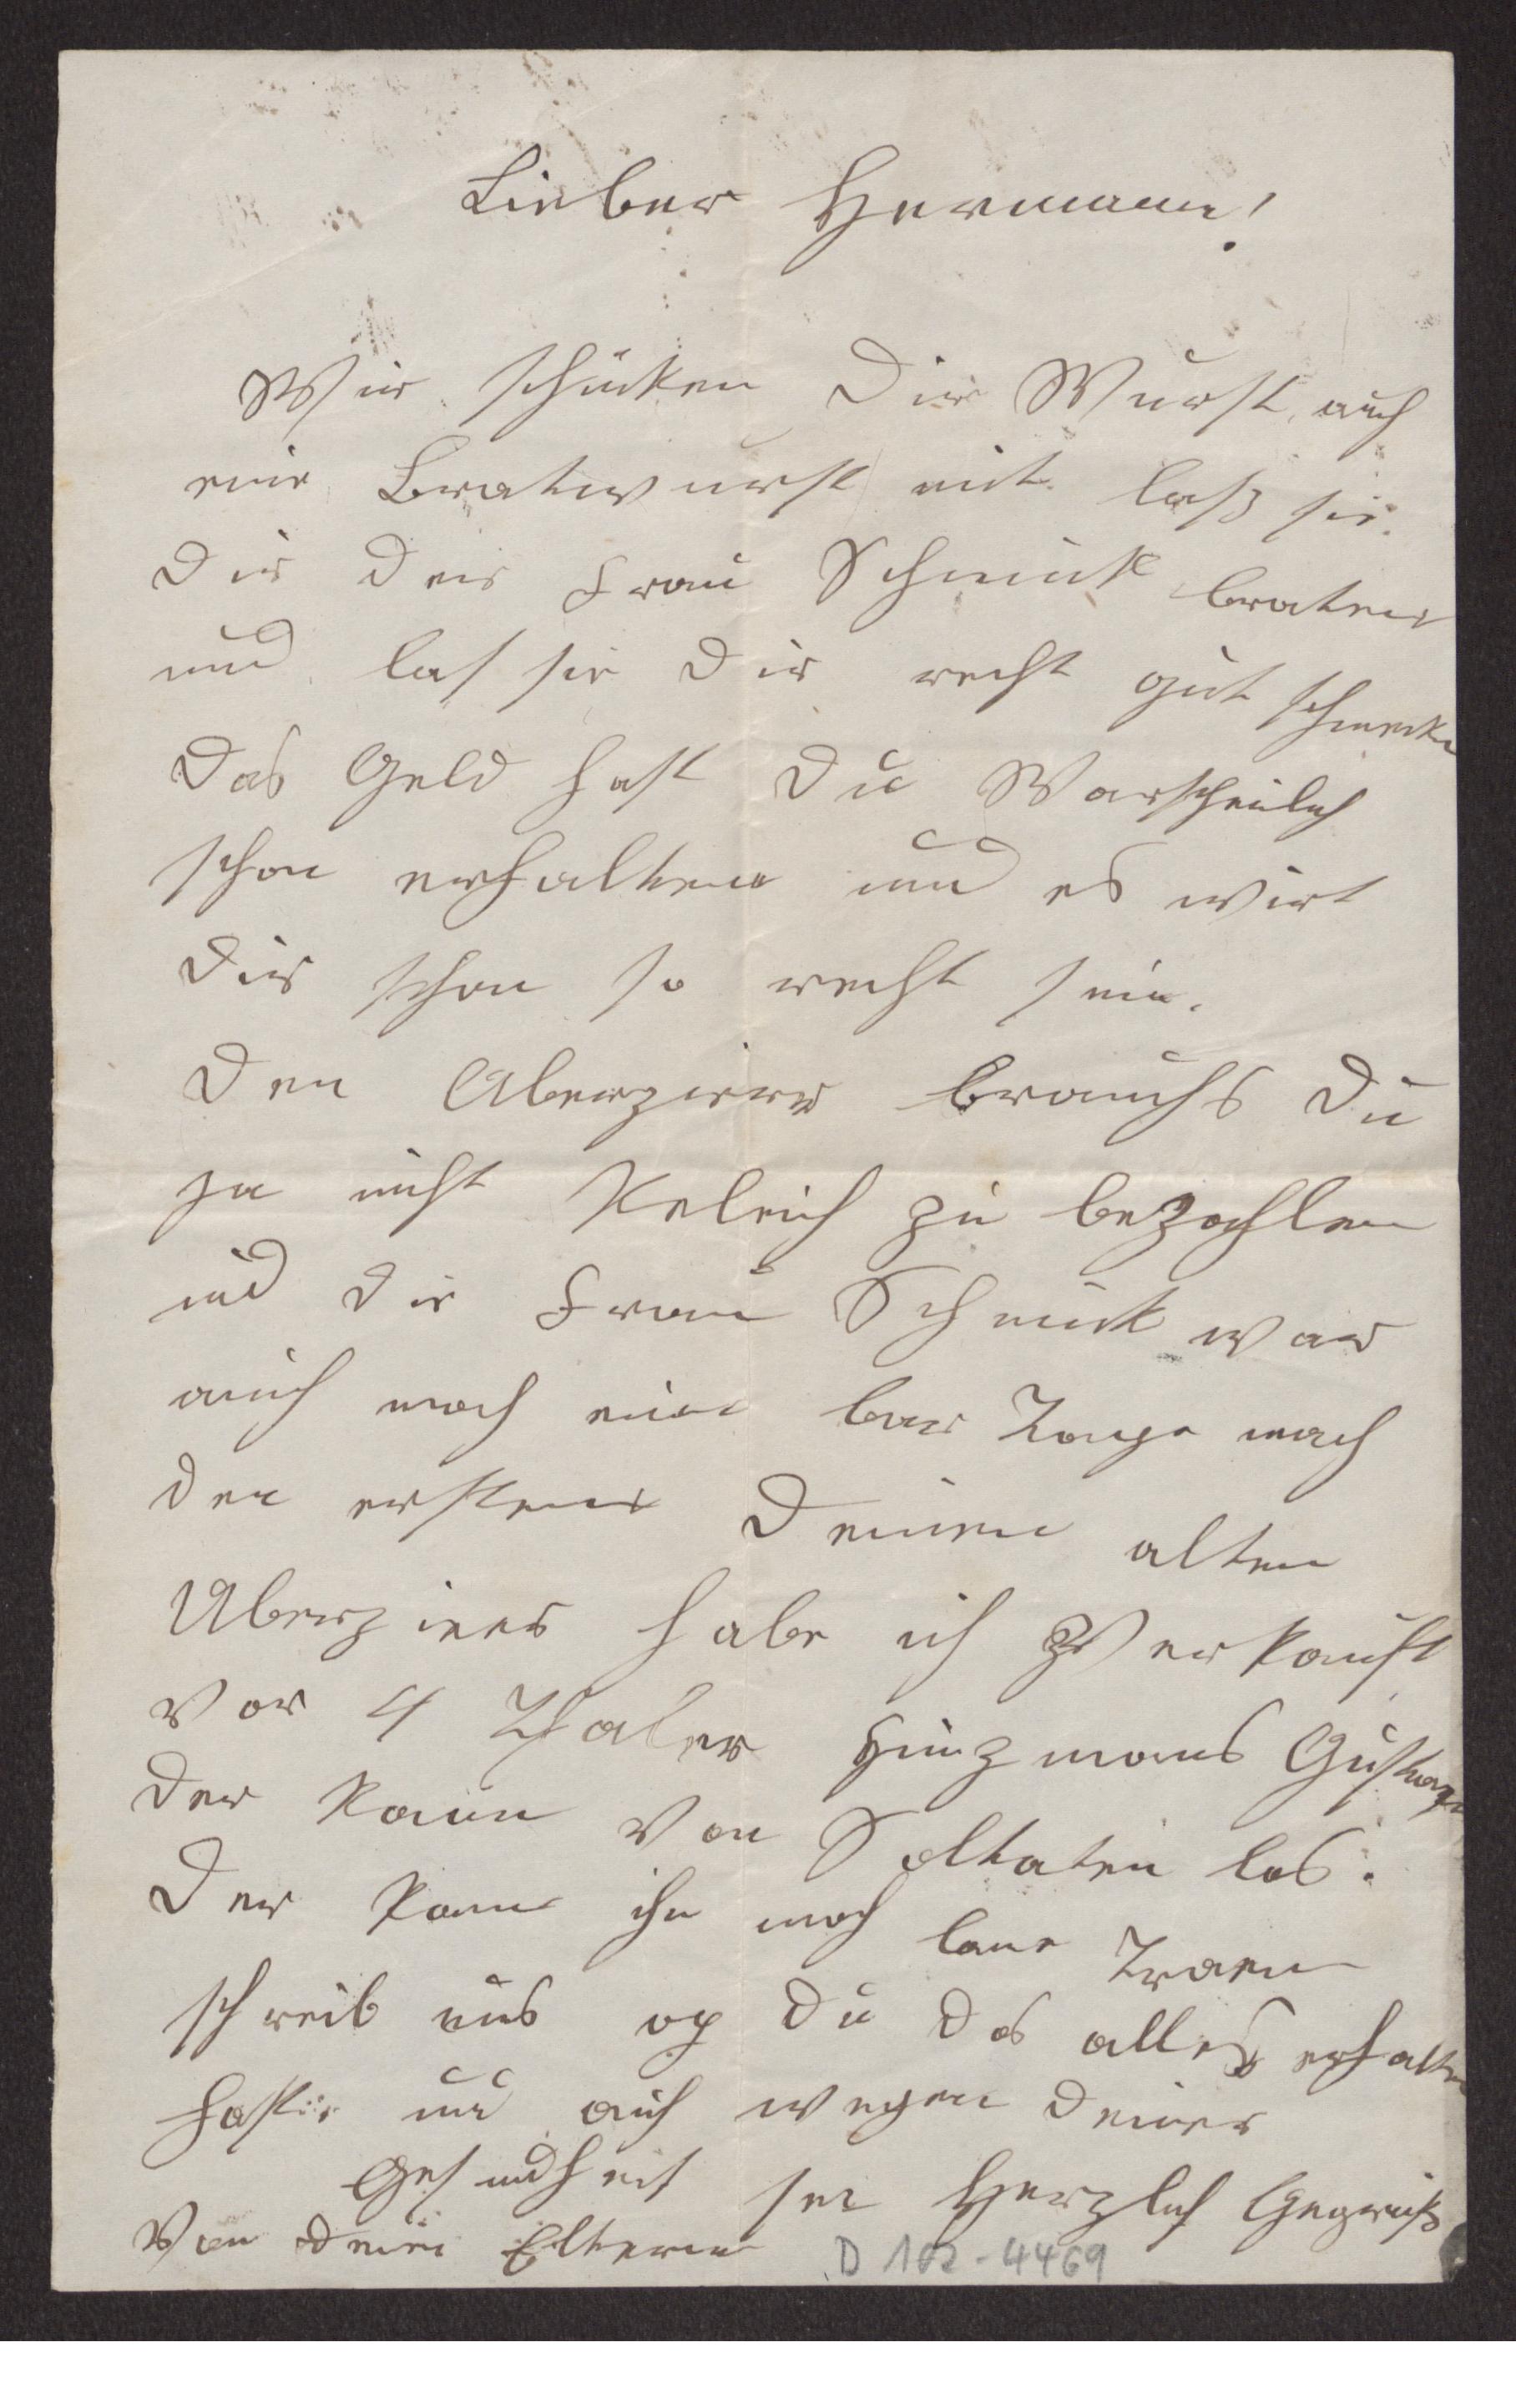 Lieber Hermann!
Wir schicken Dir Wurst auch
eine Bratwurst mit laß sie
Dir der Frau Schmidt braten
und las sie Dir recht gut schmecke
Das Geld hast Du Warscheinlich
schon erhalten und es wirt
Dir schon so recht sein.
Den Uberzierr brauchs Du
ja nicht gleich zu bezahlen
und die Frau war
auch noch ein bar Tage nach
den ersten Deinen alten
Uberzier habe ich Verkauft
vor 4 Thaler Hinzmans Gustav
der kam von Soltaten los.
Der kann ihn noch lane Traen
schreib uns op Du das alles erhalten
hast und auch wegen deiner
Gesundheit sei Herzlich Gegrüß
Von deinen Eltern
D 102-4469